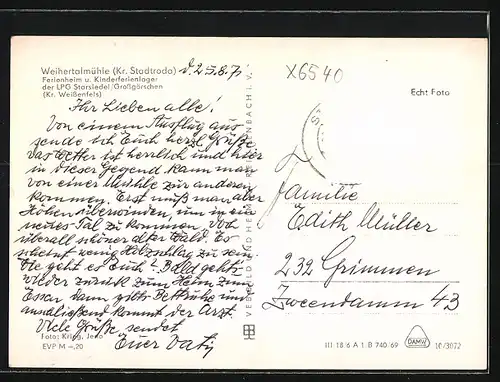 Weihertalmühle (Kr. Stadtroda)
Ferienheim u. Kinderferienlager
der LPG Starsiedel/Großgörschen
(Kr. Weißenfels)
d. 25.8.71
Ihr Lieben alle!
Von einem Ausflug aus
sende ich Euch herzl. Grüße,
das Wetter ist herrlich und hier
in dieser Gegend kann man
von einer Mühle zur anderen
kommen. Erst muß man aber
Höhen überwinden, um in ein
neues Tal zu kommen. Doch
überall schöner alter Wald. Es
scheint wenig Holzschlag zu sein.
Wie geht es Euch? Bald gehts
wieder zurück zum Heim zum
Essen dann gibts Bettruhe und
anschließend kommt der Arzt.
Viele Grüße sendet
Euer Vati
Foto: Krieg, Jena
EVP M –,20
X6540
Echt Foto
Familie
Edith Müller
232 Grimmen
Zweendamm 43
III 18 6 A 1 B 740/69
DAMW
10/3072